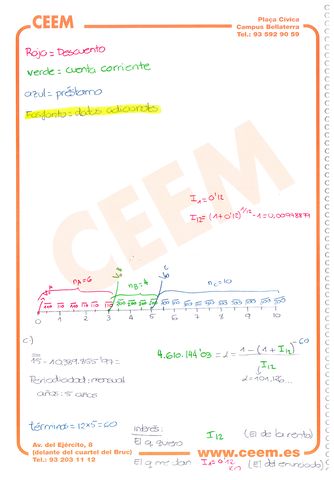 CEEM
Plaça Cívica
Campus Bellaterra
Tel.: 93 592 90 59
Rojo = Descuento
verde = cuenta corriente
azul = préstamo
Fosforito = datos adicionales
CEEM
I₁ = 0'12
I₁₂ = (1+0'12)^1/12 - 1 = 0,00948879
n_A = 6
n_B = 4
n_C = 10
0 1 2 3 4 5 6 7 8 9 10
c)
4.610.144'03 = α = 1 - (1 + I₁₂)^-60
I₁₂
Periodicidad: mensual
años: 5 años
α = 101,126...
términos = 12x5 = 60
interés:
El q quiero I₁₂ (El de la renta)
El q me dan I₁ = 0'12 (El del enunciado)
Av. del Ejército, 8
(delante del cuartel del Bruc)
Tel.: 93 203 11 12
www.ceem.es